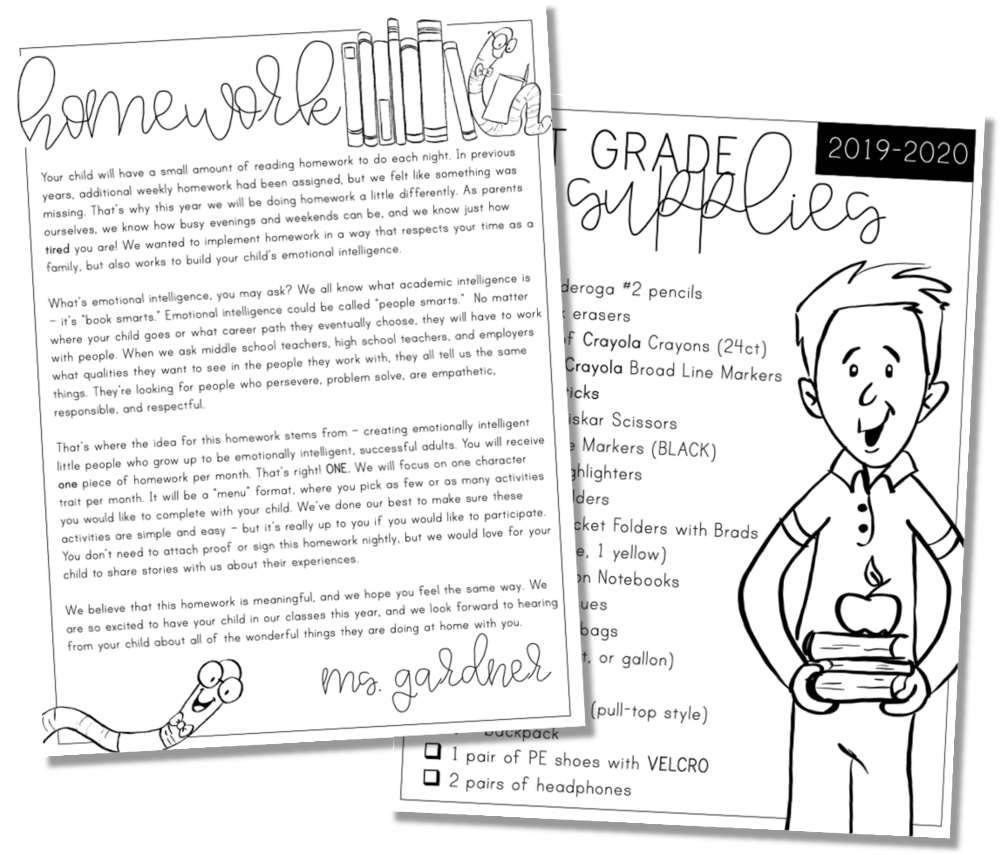 homework
Your child will have a small amount of reading homework to do each night. In previous
years, additional weekly homework had been assigned, but we felt like something was
missing. That's why this year we will be doing homework a little differently. As parents
ourselves, we know how busy evenings and weekends can be, and we know just how
tired you are! We wanted to implement homework in a way that respects your time as a
family, but also works to build your child's emotional intelligence.
What's emotional intelligence, you may ask? We all know what academic intelligence is
– it's "book smarts." Emotional intelligence could be called "people smarts." No matter
where your child goes or what career path they eventually choose, they will have to work
with people. When we ask middle school teachers, high school teachers, and employers
what qualities they want to see in the people they work with, they all tell us the same
things. They're looking for people who persevere, problem solve, are empathetic,
responsible, and respectful.
That's where the idea for this homework stems from – creating emotionally intelligent
little people who grow up to be emotionally intelligent, successful adults. You will receive
one piece of homework per month. That's right! ONE. We will focus on one character
trait per month. It will be a "menu" format, where you pick as few or as many activities
you would like to complete with your child. We've done our best to make sure these
activities are simple and easy – but it's really up to you if you would like to participate.
You don't need to attach proof or sign this homework nightly, but we would love for your
child to share stories with us about their experiences.
We believe that this homework is meaningful, and we hope you feel the same way. We
are so excited to have your child in our classes this year, and we look forward to hearing
from your child about all of the wonderful things they are doing at home with you.
ms. gardner
T GRADE
2019-2020
supplies
deroga #2 pencils
erasers
of Crayola Crayons (24ct)
Crayola Broad Line Markers
ticks
iskar Scissors
e Markers (BLACK)
ghlighters
lders
cket Folders with Brads
e, 1 yellow)
on Notebooks
ues
bags
t, or gallon)
(pull-top style)
backpack
1 pair of PE shoes with VELCRO
2 pairs of headphones